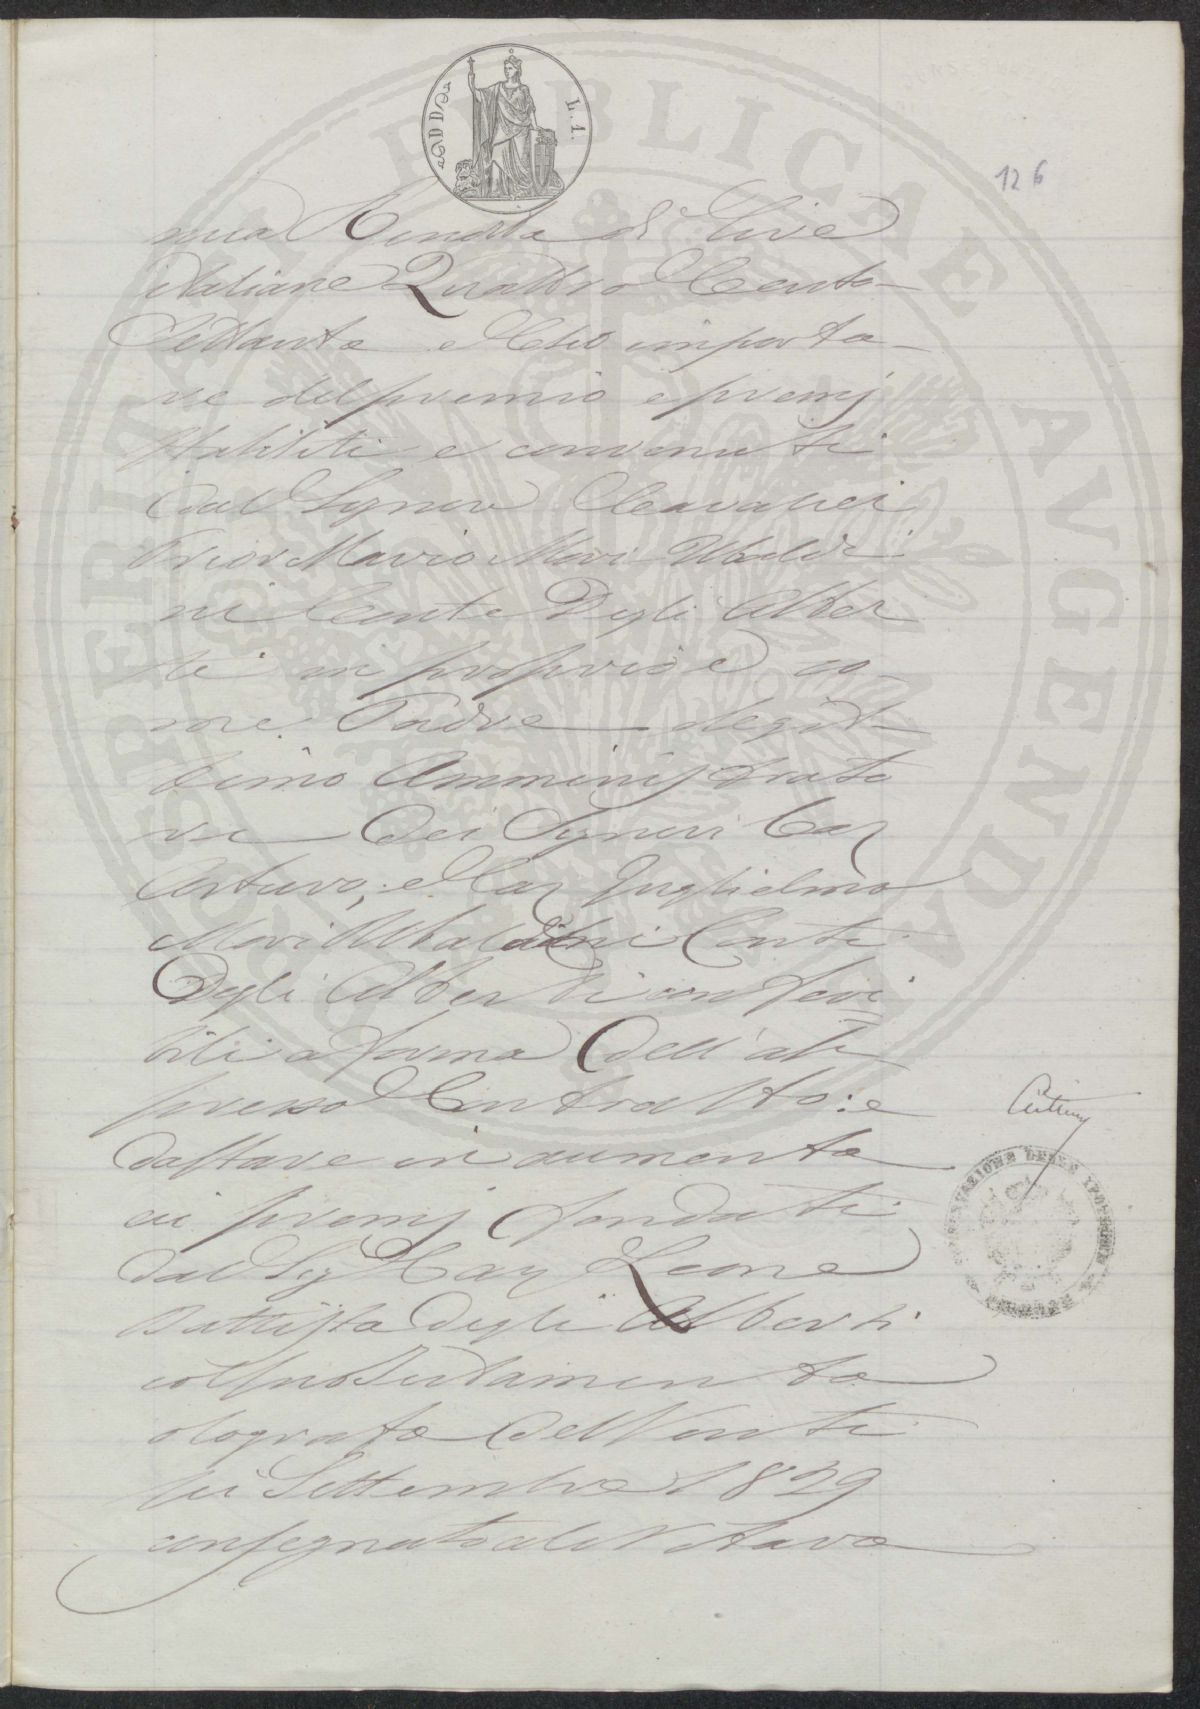 L. 1.
126
nua Rendita di Lire
italiane Quattro Cento
Settanta e Cio importa
re del premio e premj
stabiliti e convenuti
dal Signore Cavalier
Prior Mario Mori Ubaldi
ni Conte Degli Alber
ti in proprio e co
me Padre e legit
timo Amministrato
re Dei Signori Cav
Arturo, e Cav Guglielmo
Mori Ubaldini Conti
Degli Alberti conferi
bili a forma dell'ali
presso Contratto: e
dastare in aumento
ai premj fondati
dal Sig Cav Leone
Battista degli Alberti
col suo Testamento
olografo del Venti
sei Settembre 1829
consegnato al Notaro
CONSERVAZIONE DELLE IPOTECHE
PERIURI PUBLICAE AUGENDAE